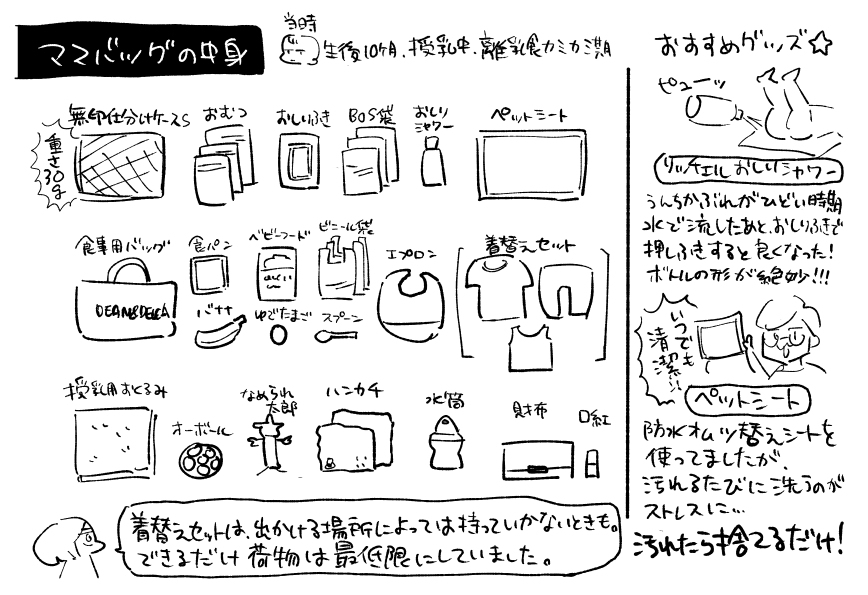 ママバッグの中身
当時
生後10ヶ月、授乳中、離乳食カミカミ期
無印仕分けケースS
重さ30g
おむつ
おしりふき
BOS袋
おしり
シャワー
ペットシート
食事用バッグ
DEAN&DELUCA
食パン
ベビーフード
ビニール袋
エプロン
着替えセット
バナナ
ゆでたまご
スプーン
授乳用おくるみ
オーボール
なめられ
太郎
ハンカチ
水筒
財布
口紅
着替えセットは、出かける場所によっては持っていかないときも。
できるだけ荷物は最低限にしていました。
おすすめグッズ☆
ピューッ
リッチェルおしりシャワー
うんちかぶれがひどい時期
水で流したあと、おしりふきで
押しふきすると良くなった!
ボトルの形が絶妙!!!
いつでも
清潔!!
ペットシート
防水オムツ替えシートを
使ってましたが、
汚れるたびに洗うのが
ストレスに…
汚れたら捨てるだけ!